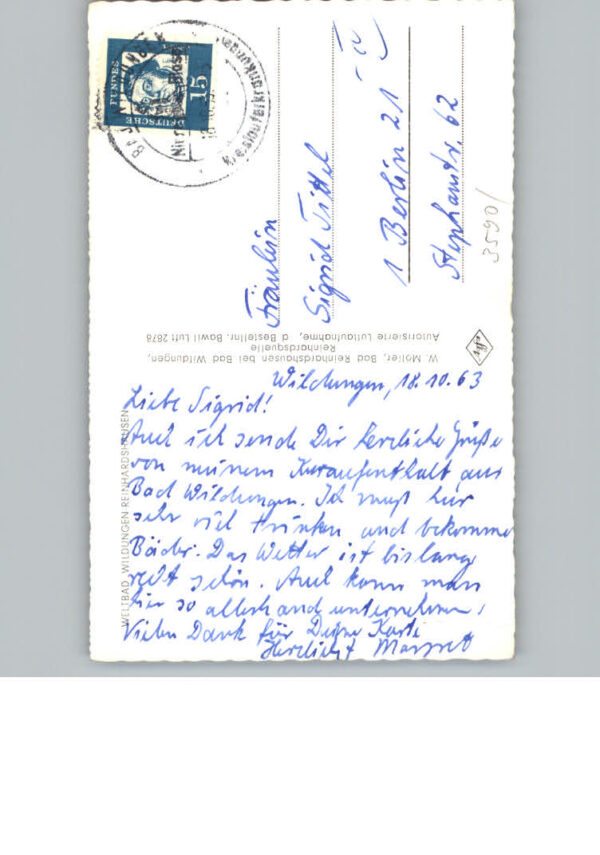 Wildungen, 18.10.63
Liebe Sigrid!
Auch ich sende Dir herzliche Grüße
von meinem Kuraufenthalt aus
Bad Wildungen. Ich muß hier
sehr viel trinken und bekomme
Bäder. Das Wetter ist bislang
recht schön. Auch kann man
hier so allerhand unternehmen.
Vielen Dank für Deine Karte
Herzlichst Margret
Fräulein
Sigrid Tittel
1 Berlin 21
Stephanstr. 62
3590/
W. Moller, Bad Reinhardshausen bei Bad Wildungen,
Reinhardsquelle
Autorisierte Luftaufnahme, d. Bestellnr. Bawil Luft 2878
WELTBAD WILDUNGEN-REINHARDSHAUSEN
DEUTSCHE
BUNDES
15